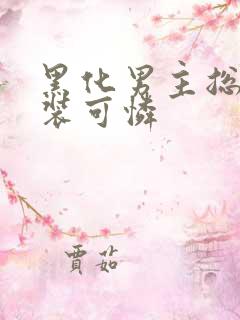 黑化男主总
装可憐
賈茹